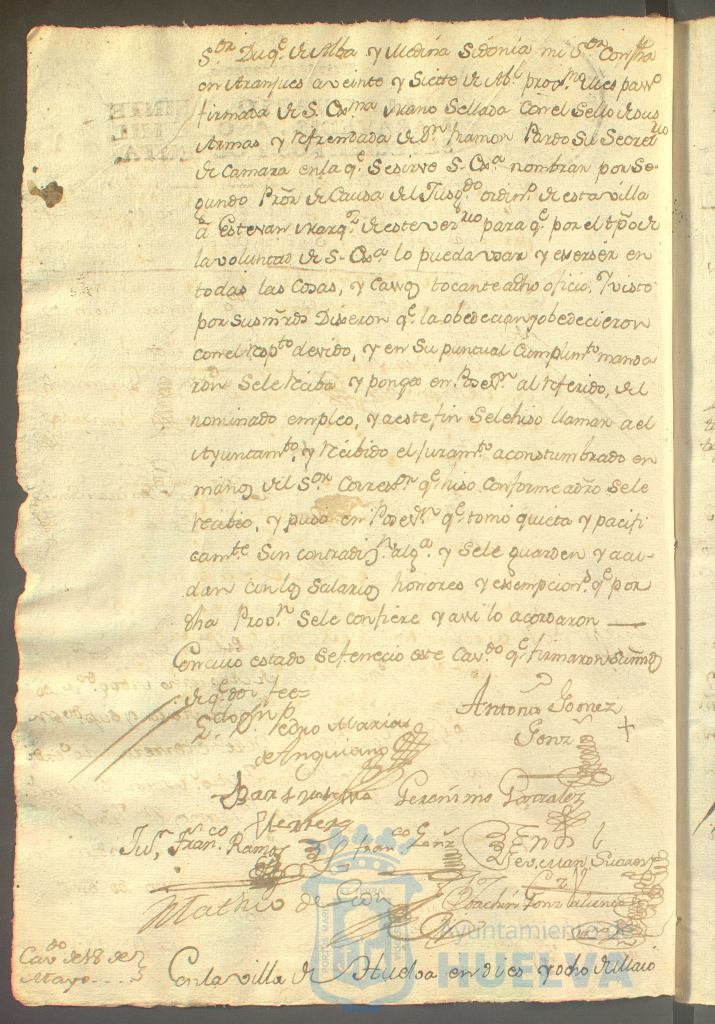 S.or Duq.e de Alba y Medina Sidonia mi S.or con fha
en Aranjues a veinte y Siette de Ab.l prox.mo
firmada de S. Ex.ma mano Sellada con el Sello de sus
Armas y Refrendada de D.n Ramon Pardo Su Secret.rio
de Camara en la q.e Sesirve S. Ex.a nombrar por Se
gundo Pror de Causa del Jusg.do ordin.o de esta villa
â Estevan Marq.z de este vez.no para q.e por el tpo de
la voluntad de S. Ex.a lo pueda usar y exerser en
todas las Cosas, y Casos tocante a dho oficio. Y visto
por Susmrds Dixeron q.e la obedecian y obedecieron
con el Resp.to devido, y en Su puntual Cumplim.to manda
ron Sele Reciba y ponga en Poses.n al Referido, del
nominado empleo, y a este fin Sele hiso llamar a el
Ayuntam.to, y Recibido el Juram.to aconstumbrado en
manos del S.or Correx.or q.e hiso conforme a dro Sele
Recibio, y puso en Poses.n q.e tomo quieta y pacifi
cam.te Sin contradi.on alg.a y Sele guarden y acu
dan con los Salarios honores y exempcion.s q.e por
dha Prov.n Sele confiere y asi lo acordaron —
En cuio estado Sefenecio este Cav.do q.e firmaron Susmrds
de q.e doi fee=
Pedro Marias
de Anguiano
Antonio Gomez
Gonz.s +
Geronimo Gonzalez
Herrera
Ju.n Fran.co Ramos
Fran.co Gonz
Xuarez
Matheo de Leon
Joachin Gonz
Cav.do de 18 de
Mayo
En la villa de Huelva en dies y ocho de Maio
Ayuntamiento de
HUELVA